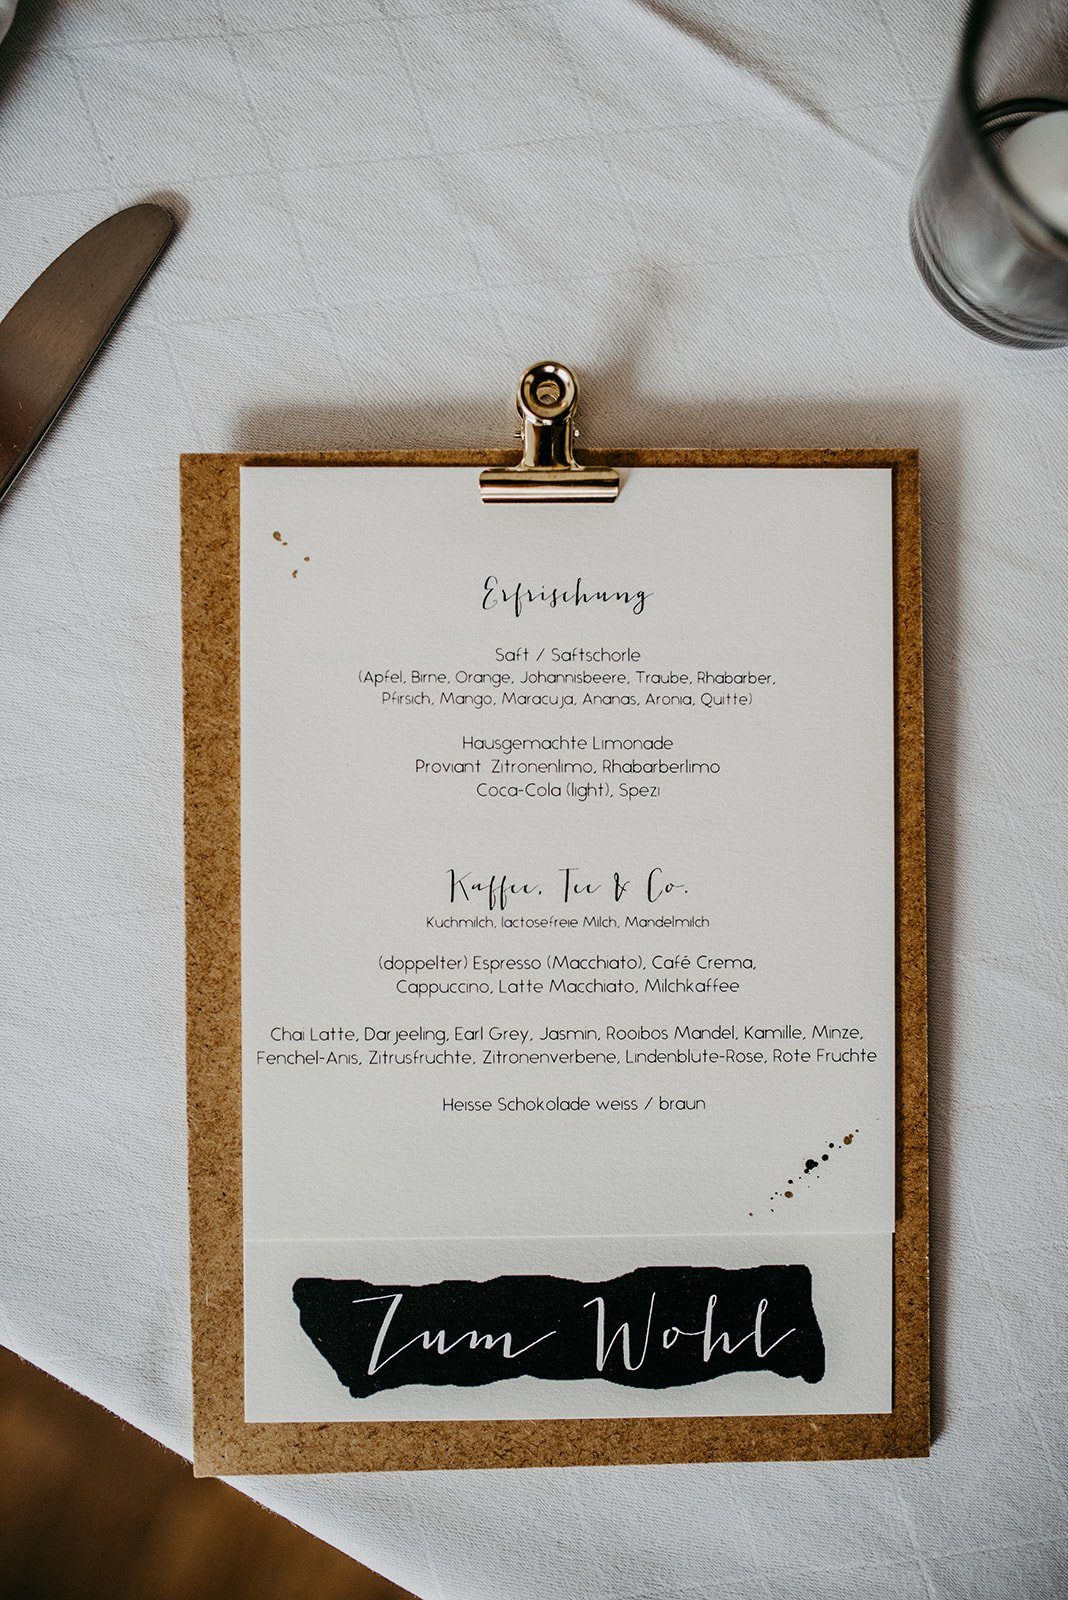 Erfrischung
Saft / Saftschorle
(Apfel, Birne, Orange, Johannisbeere, Traube, Rhabarber,
Pfirsich, Mango, Maracuja, Ananas, Aronia, Quitte)
Hausgemachte Limonade
Proviant Zitronenlimo, Rhabarberlimo
Coca-Cola (light), Spezi
Kaffee, Tee & Co.
Kuchmilch, lactosefreie Milch, Mandelmilch
(doppelter) Espresso (Macchiato), Café Crema,
Cappuccino, Latte Macchiato, Milchkaffee
Chai Latte, Darjeeling, Earl Grey, Jasmin, Rooibos Mandel, Kamille, Minze,
Fenchel-Anis, Zitrusfruchte, Zitronenverbene, Lindenblute-Rose, Rote Fruchte
Heisse Schokolade weiss / braun
Zum Wohl